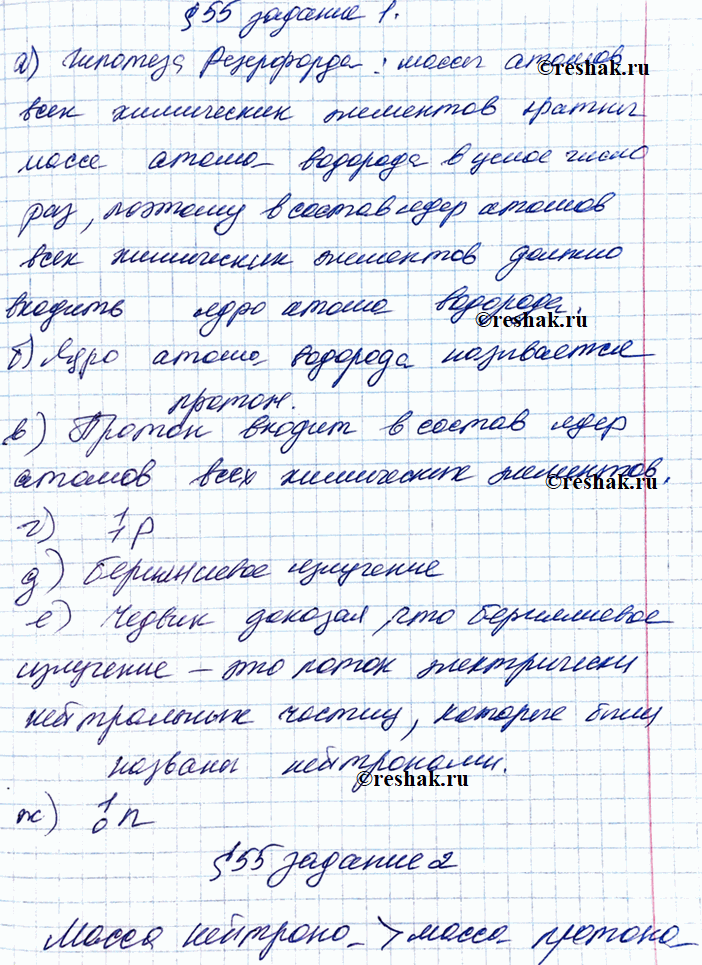 §55 задание 1.
а) Гипотеза Резерфорда: массы атомов
©reshak.ru
всех химических элементов кратны
массе атома водорода в целое число
раз, поэтому в состав ядер атомов
всех химических элементов должно
входить ядро атома водорода.
©reshak.ru
б) Ядро атома водорода называется
протон.
в) Протон входит в состав ядер
атомов всех химических элементов.
©reshak.ru
г) ¹₁p
д) Бериллиевое излучение
е) Чедвик доказал, что бериллиевое
излучение – это поток электрически
нейтральных частиц, которые были
названы нейтронами.
©reshak.ru
ж) ¹₀n
§55 задание 2
Масса нейтрона > масса протона